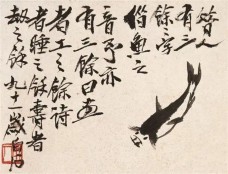 昔人
有三
餘之字
借魚之
音予亦
有三餘曰畫
者工之餘詩
者睡之餘壽者
劫之餘九十一歲白石